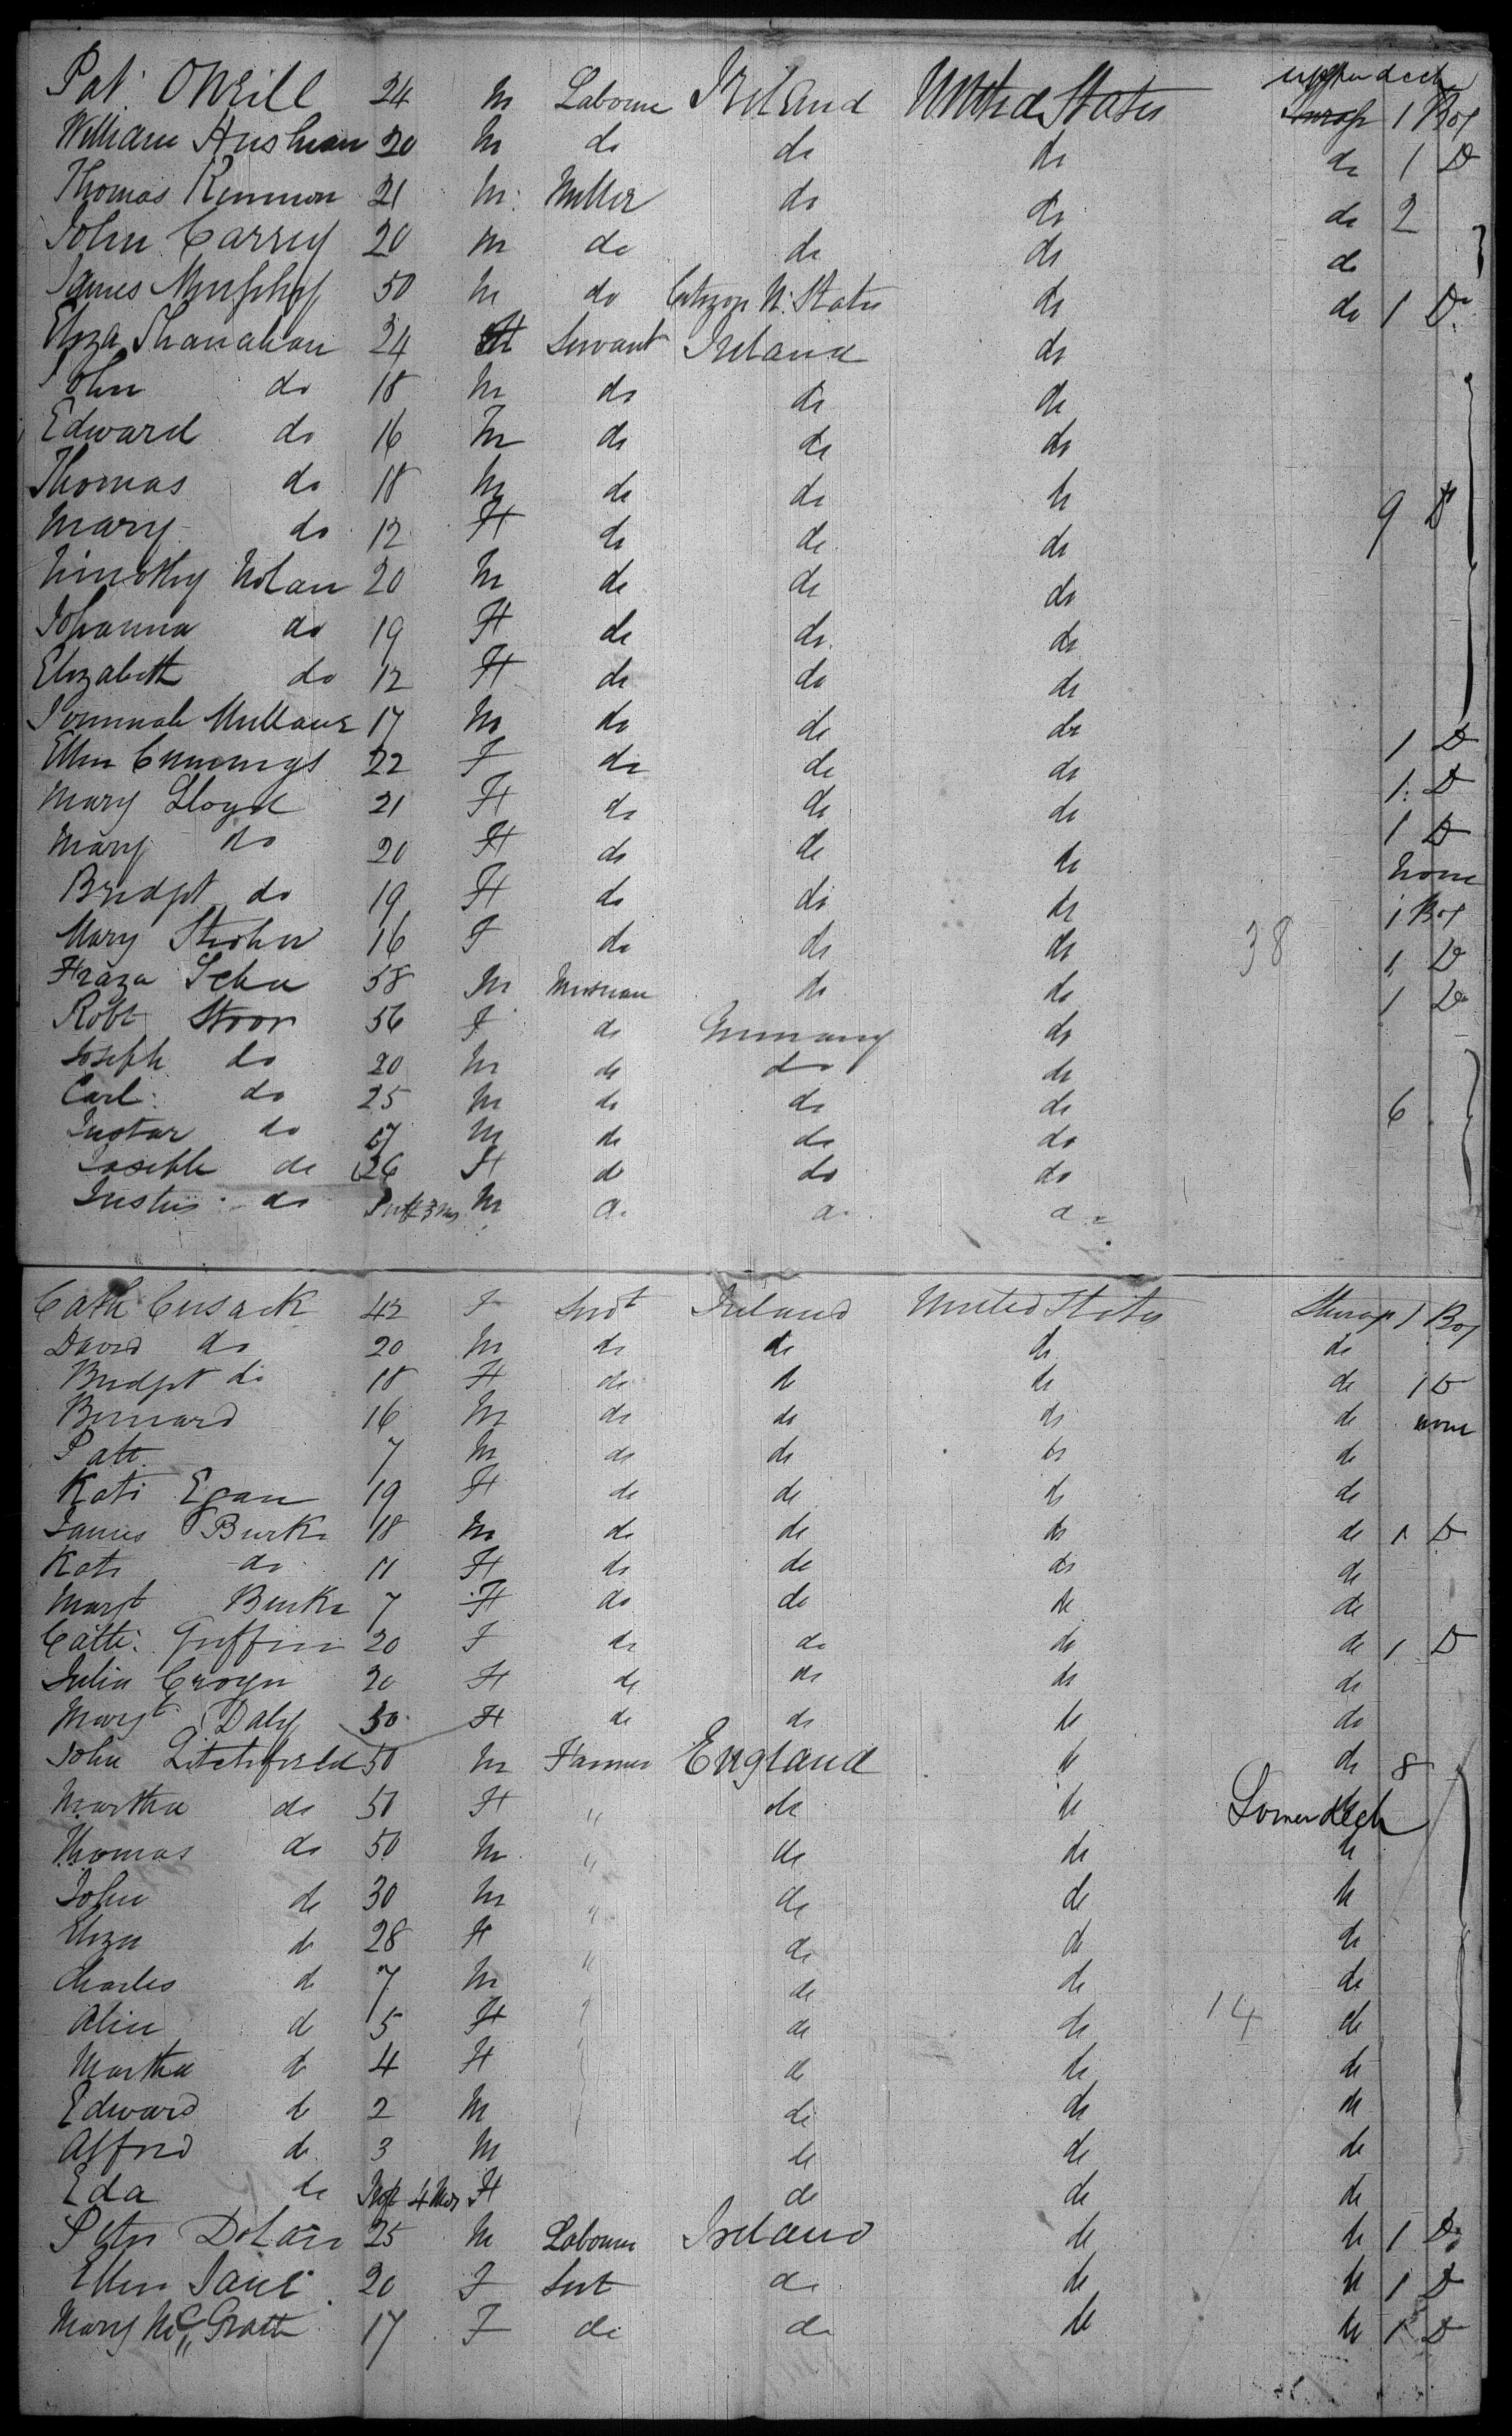 upper deck
Pat. ONeill 24 M Laborer Ireland United States 1 Box
William 20 M do do do do 1 D
Thomas 21 M. Miller do do do 2
John Carrey 20 M do do do do
James Murphy 50 M do Citizen U. States do do 1 D.
Eliza Shanahan 24 Servant Ireland do
John do 18 M do do do
Edward do 16 M do do do
Thomas do 18 M do do do
Mary do 12 F do do do 9 D
Timothy Nolan 20 M do do do
Johanna do 19 F do do. do
Elizabeth do 12 F do do do
17 M do do do 1 D
Ellen Cummings 22 F do do do 1. D
Mary Lloyd 21 F do do do 1 D
Mary do 20 F do do do None
Bridget do 19 F do do do 1 Box
Mary 16 F do do do 38 1 D
58 M do do 1 Do
Robt 56 F do Germany do
Joseph do 20 M do do do
Carl. do 25 M do do do 6
do 17 M do do do
do 26 F do do do
do Inft 3 Mos M do do do
Cath Cusack 42 F Servt Ireland United States 1 Box
David do 20 M do do do do
Bridget do 18 F do do do do 1 D
Bernard 16 M do do do do none
Patt. 7 M do do do do
Kate Egan 19 F do do do do
James Burke 18 M do do do do 1 D
Kate do 11 F do do do do
Margt Burke 7 F do do do do
Cath. Griffin 20 F do do do do 1 D
Julia 20 F do do do do
Margt Daly 30 F do do do do
John Litchfield 50 M Farmer England do do 8
Martha do 51 F " do do Lower deck
Thomas do 50 M " do do do
John do 30 M " do do do
Eliza do 28 F " do do do
Charles do 7 M do do do
Alice do 5 F do do 14 do
Martha do 4 F do do do
Edward do 2 M do do do
Alfred do 3 M do do do
Eda do Inft 4 Mos F do do do
Peter Dolan 25 M Laborer Ireland do do 1 Do
Ellen 20 F Sert do do do 1 D
Mary McGrath 17 F do do do do 1 D